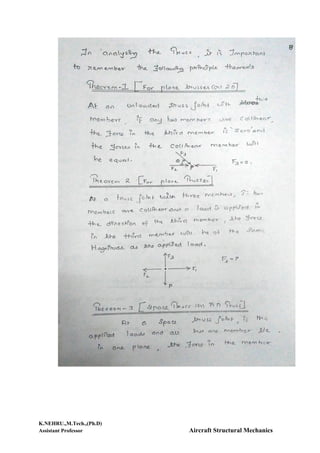 8
In analysing the Truss, It is Important
to remember the following principle theorems
Theorem-1 [For plane trusses (or) 2D]
At an unloaded truss joint with three
members, if any two members are collinear,
the force in the third member is zero and
the forces in the collinear member will
be equal.
F3
F2
F1
F3=0.
Theorem 2 [For plane Trusses]
At a truss joint with three members, If two
members are collinear and a load is applied in
the direction of the third member, the force
in the third member will be of the same
Magnitude as the applied load.
F3
F3=P
F1
F2
P
Theorem-3 [Space Truss (or) 3D Truss]
At a space truss joint, if the
applied loads and all but one member lie
in one plane, the force in the member
K.NEHRU.,M.Tech.,(Ph.D)
Assistant Professor Aircraft Structural Mechanics